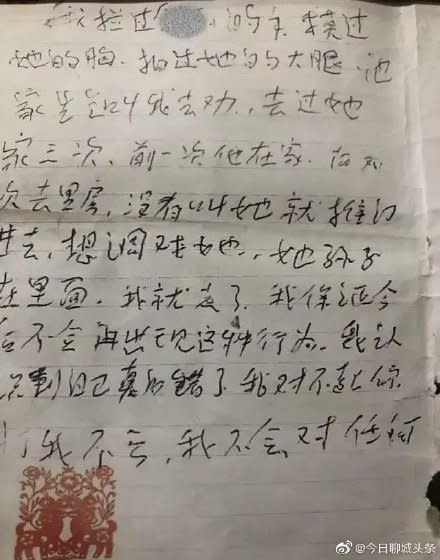 我拦过 的车 摸过
她的胸. 拍过她的大腿. 她
家先 叫我去功, 去过她
家三次, 前一次他在家. 
次去里房, 没有叫她就推门
进去, 想调戏她, 她孙子
在里面. 我就走了. 我保证今
后不会再出现这种行为. 我认
识到自己真的错了. 我对不起你
们 我不 , 我不会对任何
@今日聊城头条